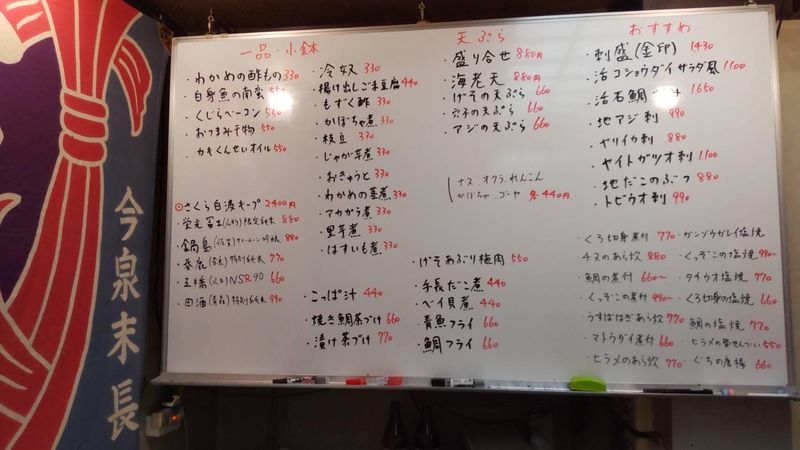 一品・小鉢
・わかめの酢もの 330
・白身魚の南蛮 550
・くじらベーコン 550
・おつまみ干物 550
・カキくんせいオイル 550
・冷奴 330
・揚げ出しごま豆腐 440
・もずく酢 330
・かぼちゃ煮 330
・枝豆 330
・じゃが芋煮 330
・おきゅうと 330
・わかめの茎煮 330
・アカガラ煮 330
・里芋煮 330
・はすいも煮 330
さくら白波キープ 2400円
・栄光冨士 880
・鍋島 880
・春鹿 特別純米 770
・五橋 NSR90 660
・田酒 特別純米 990
・こっぱ汁 440
・焼き鯛茶づけ 660
・漬け茶づけ 770
天ぷら
・盛り合せ 880円
・海老天 880円
・げその天ぷら 660
・穴子の天ぷら 660
・アジの天ぷら 660
ナス、オクラ、れんこん
かぼちゃ、ゴーヤ 各440円
・げそあぶり梅肉 550
・手長だこ煮 440
・ベイ貝煮 440
・青魚フライ 660
・鯛フライ 660
おすすめ
・刺盛(金印) 1430
・活コショウダイサラダ風 1100
・活石鯛 1650
・地アジ刺 990
・ヤリイカ刺 880
・ヤイトガツオ刺 1100
・地だこのぶつ 880
・トビウオ刺 990
・くろ切身煮付 770
・チヌのあら炊 880
・鯛の煮付 660〜
・くつぞこの煮付 990〜
・うすばはぎあら炊 770
・マトウダイ煮付 660
・ヒラメのあら炊 770
・ガンゾウガレイ塩焼
・くつぞこの塩焼 990〜
・タイウオ塩焼 770
・くろ切身の塩焼 660
・鯛の塩焼 770
・ヒラメの骨せんべい 550
・ぐちの唐揚 660
今泉末長